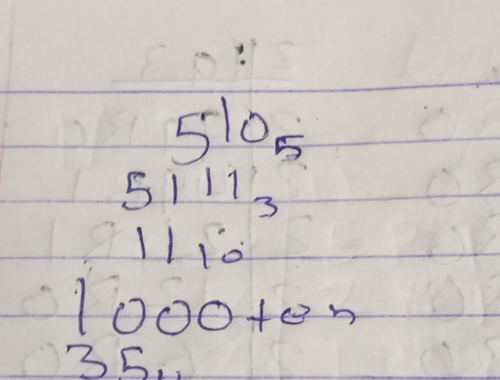 510₅
5111₃
11₁₀
1000ton
35